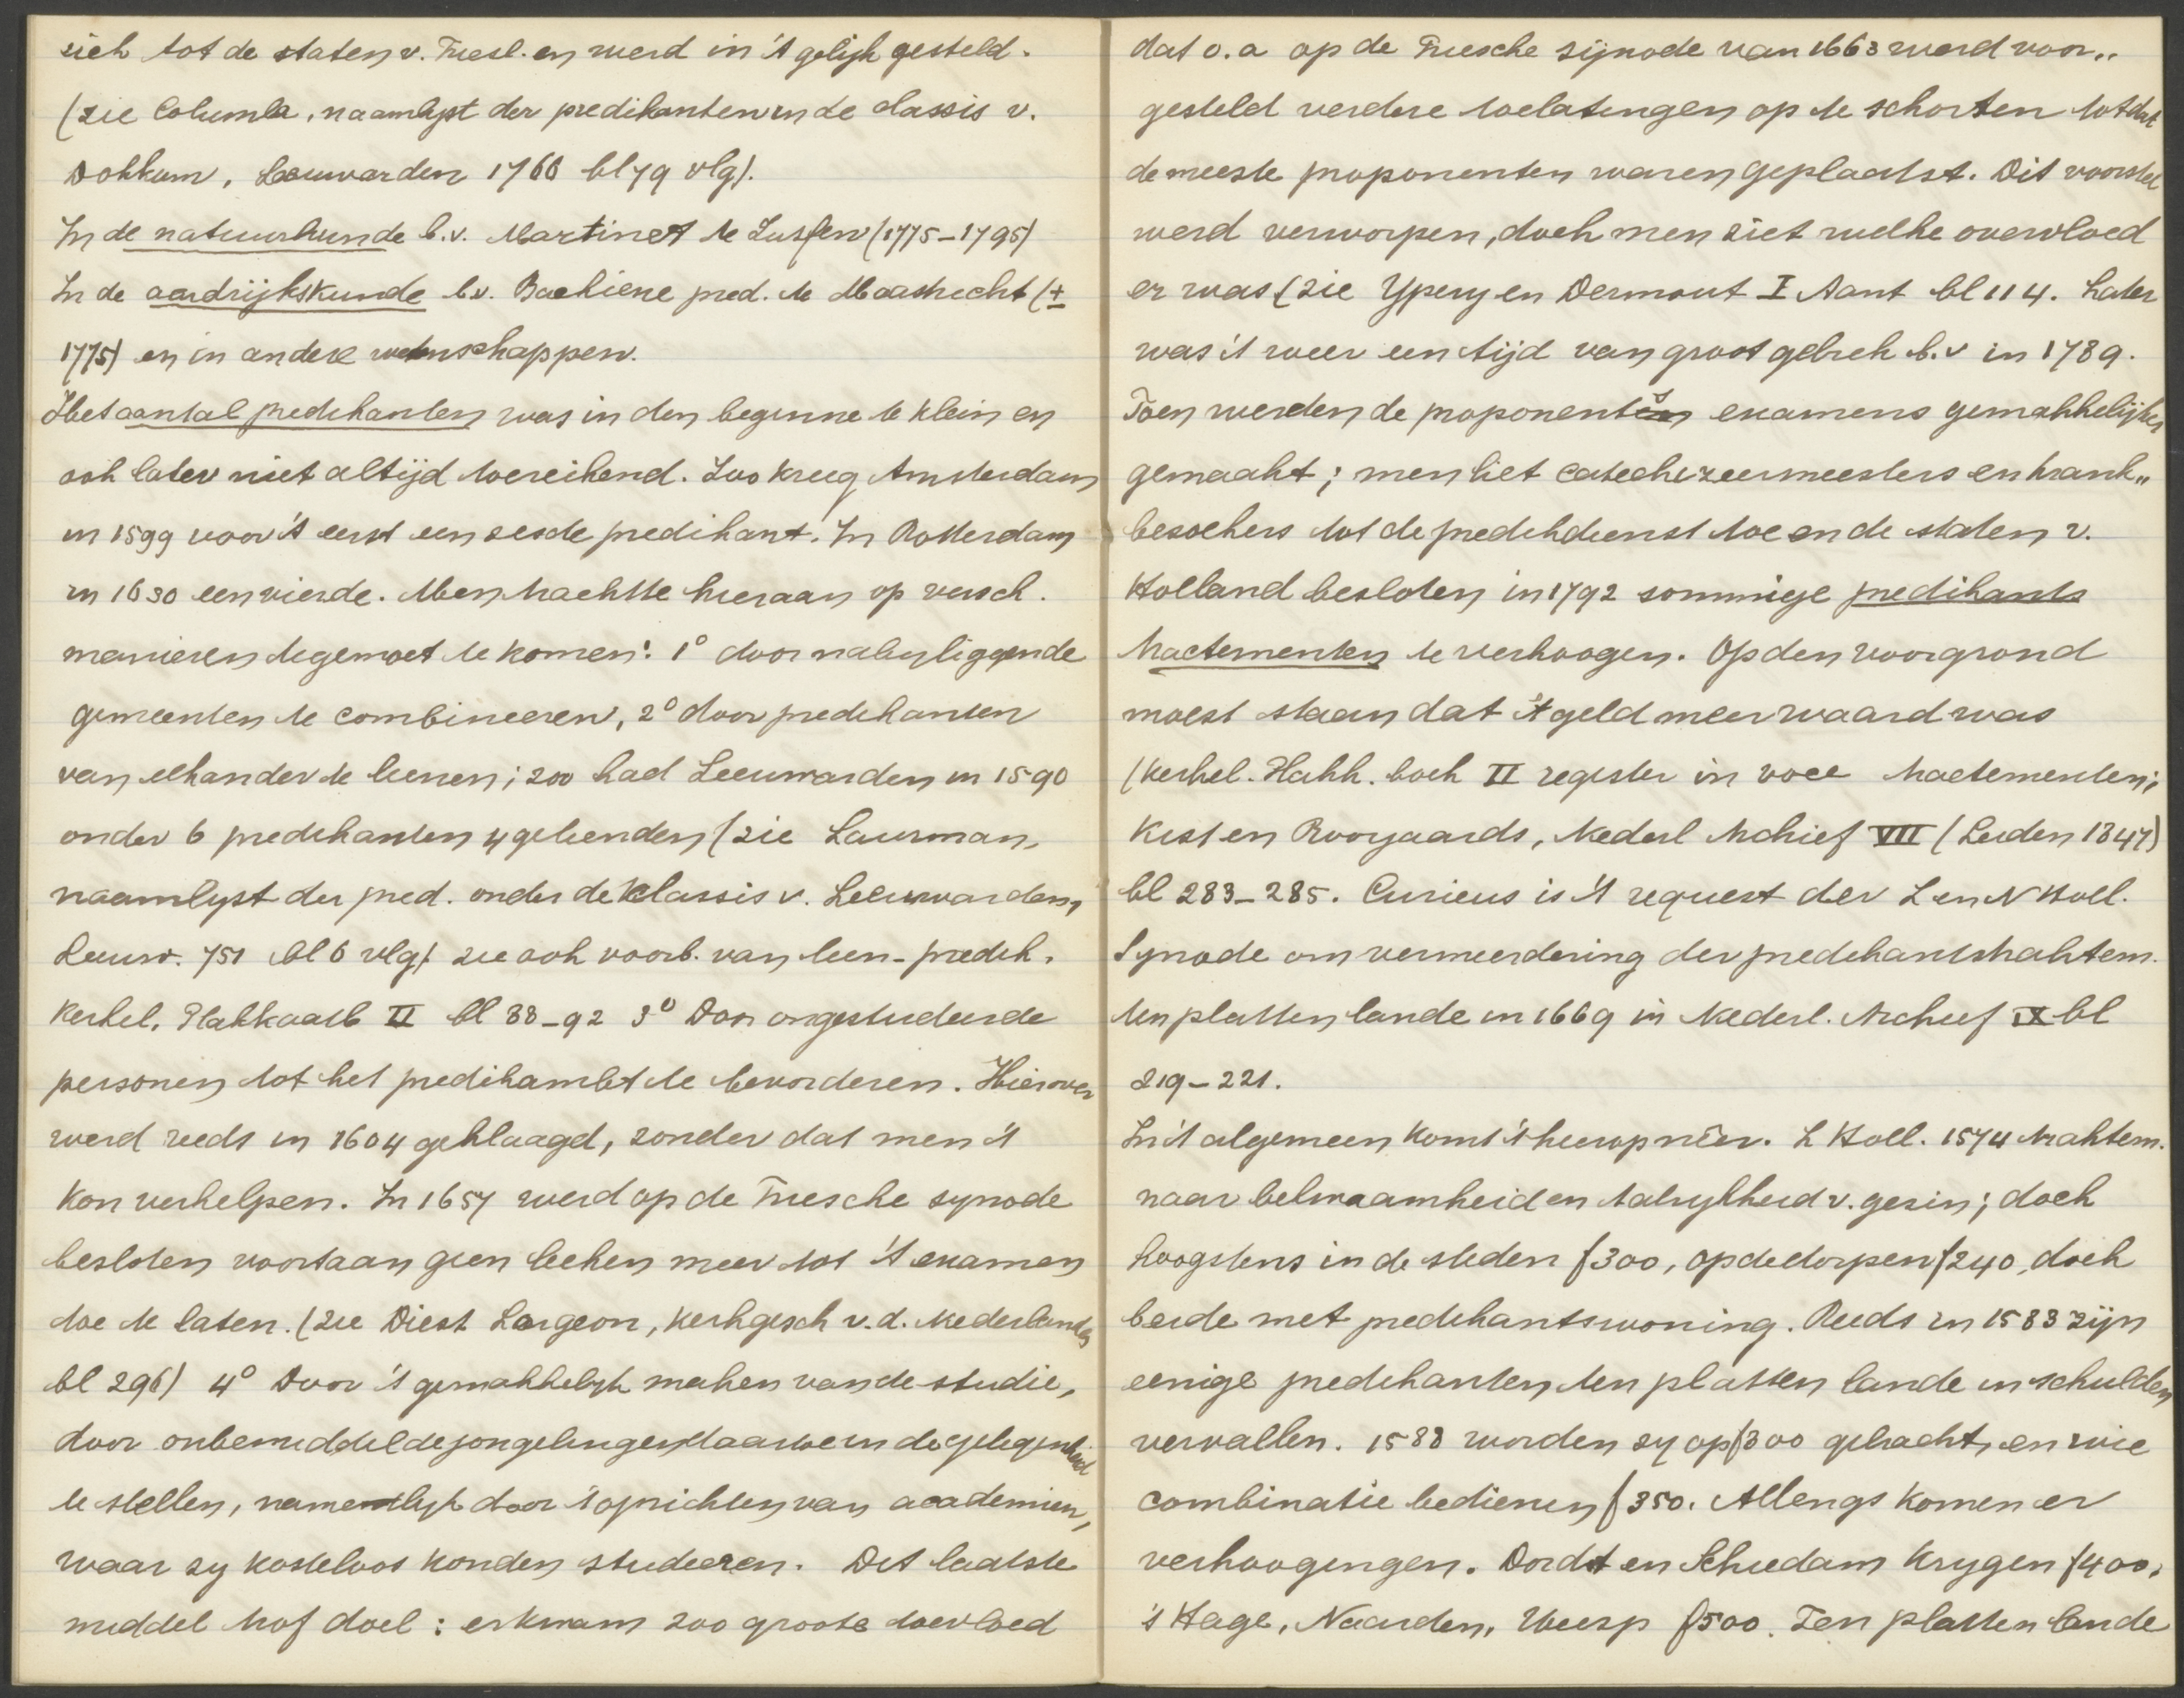 zich tot de staten v. Friesl. en werd in 't gelijk gesteld.
(zie Columba, naamlyst der predikanten in de classis v.
Dokkum, Leeuwarden 1766 bl 79 vlg).
In de natuurkunde b.v. Martinet te Zutfen (1775-1795)
In de aardrijkskunde b.v. Bachiene pred. te Maastricht (±
1775) en in andere wetenschappen.
Het aantal predikanten was in den beginne te klein en
ook later niet altijd toereikend. Zoo kreeg Amsterdam
in 1599 voor 't eerst een zesde predikant. In Rotterdam
in 1630 een vierde. Men trachtte hieraan op versch.
manieren tegemoet te komen: 1° door nabyliggende
gemeenten te combineeren, 2° door predikanten
van elkander te leenen; zoo had Leeuwarden in 1590
onder 6 predikanten 4 geleenden (zie Laurman,
naamlyst der pred. onder de klassis v. Leeuwarden,
Leeuw. 751 bl 6 vlg) zie ook voorb. van leen-predik.
Kerkel. Plakkaatb II bl 88-92 3° Door ongestudeerde
personen tot het predikambt te bevorderen. Hierover
werd reeds in 1604 geklaagd, zonder dat men 't
kon verhelpen. In 1657 werd op de Friesche synode
besloten voortaan geen leeken meer tot 't examen
toe te laten. (zie Diest Lorgeon, Kerkgesch v.d. Nederlanden
bl 296) 4° Door 't gemakkelyk maken van de studie,
door onbemiddelde jongelingen daartoe in de gelegenheid
te stellen, namentlyk door 't oprichten van academien,
waar zy kosteloos konden studeeren. Dit laatste
middel trof doel: er kwam zoo groote toevloed
dat o.a op de Friesche synode van 1663 werd voor„
gesteld verdere toelatingen op te schorten totdat
de meeste proponenten waren geplaatst. Dit voorstel
werd verworpen, doch men ziet welke overvloed
er was (zie Ypeyen Dermout I Aant bl 114. Later
was 't weer een tijd van groot gebrek b.v in 1789.
Toen werden de proponents examens gemakkelijker
gemaakt; men liet catechizeermeesters en krank„
bezoekers tot de predikdienst toe en de staten v.
Holland besloten in 1792 sommige predikants
tractementen te verhoogen. Op den voorgrond
moest staan dat 't geld meer waard was
(Kerkel. Plakk. boek II register in voce tractementen;
Kist en Rooyaards, Nederl Archief VII (Leiden 1847)
bl 283-285. Curieus is 't request der Z en N Holl.
Synode om vermeerdering der predikantstraktem.
ten platten lande in 1669 in Nederl. Archief IX bl
219-221.
In 't algemeen komt 't hierop nêer. Z Holl. 1574 traktem.
naar bekwaamheid en talrykheid v. gezin; doch
hoogstens in de steden f300, op de dorpen f240, doch
beide met predikantswoning. Reeds in 1583 zijn
eenige predikanten ten platten lande in schulden
vervallen. 1588 worden zy op f300 gebracht, en wie
combinatie bedienen f350. Allengs komen er
verhoogingen. Dordt en Schiedam krygen f400,
's Hage, Naarden, Weesp f500. Ten platten lande